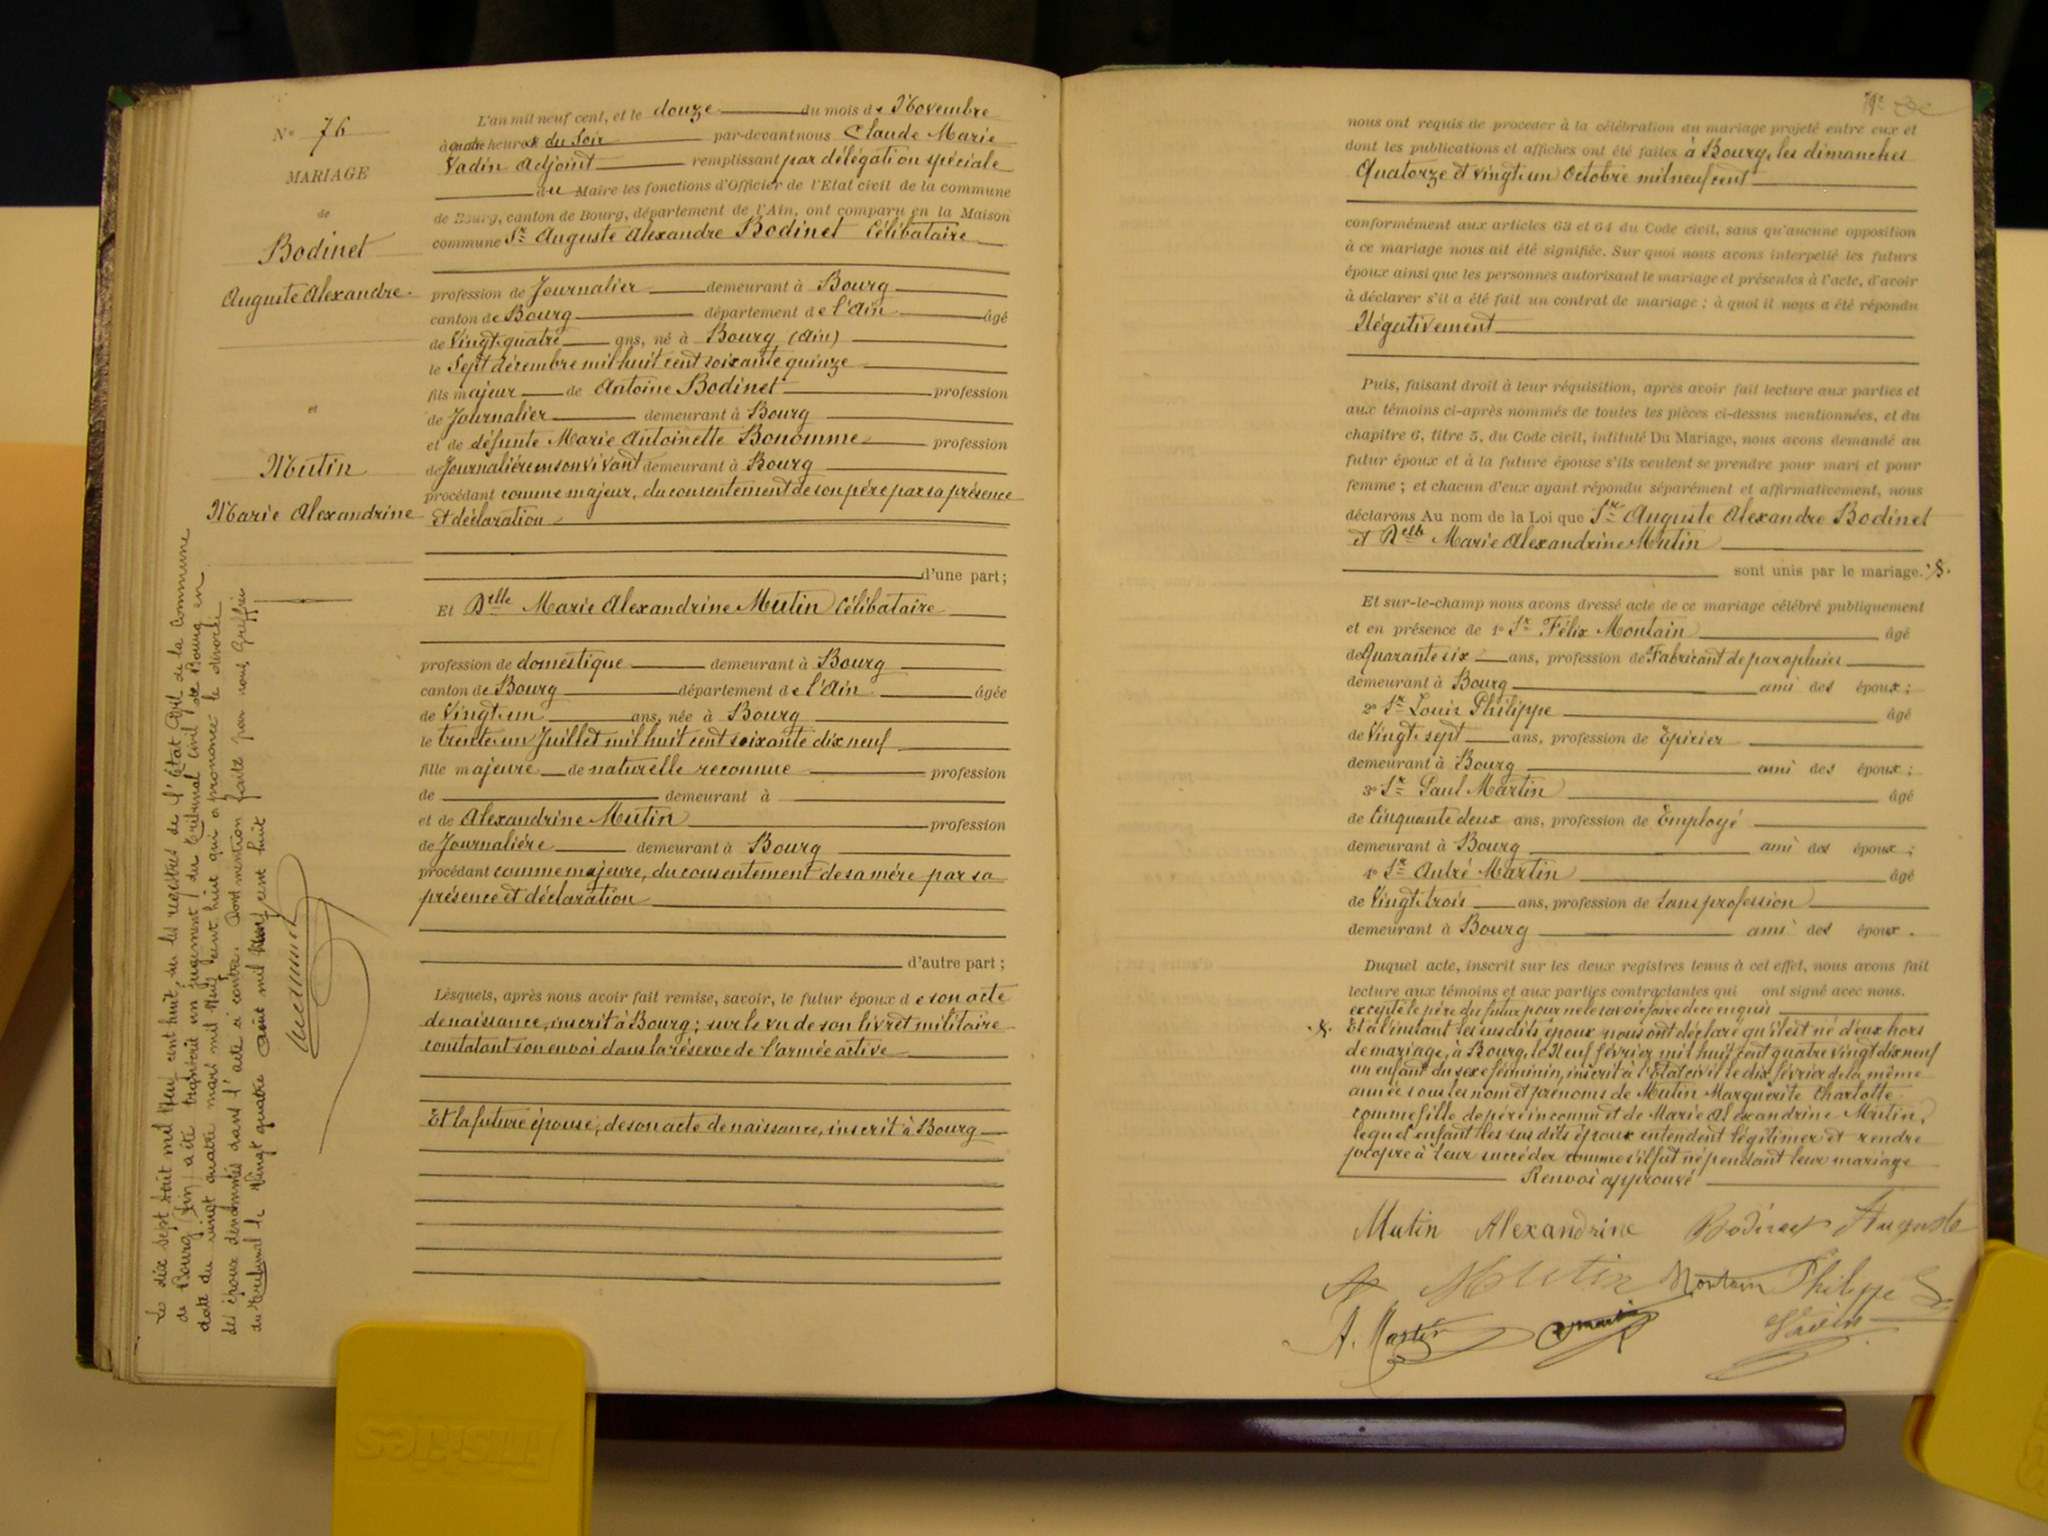 N° 76
MARIAGE
de
Bodinet
Auguste Alexandre
et
Mutin
Marie Alexandrine
Le dix sept Août mil neuf cent huit, sur les registres de l'État Civil de la Commune
de Bourg (Ain) a été transcrit un jugement du Tribunal Civil de Bourg en
date du vingt quatre mars mil neuf cent huit qui a prononcé le divorce
des époux dénommés dans l'acte ci contre. Dont mention faite par nous Greffier
du Tribunal le Vingt quatre Août mil neuf cent huit
L'an mil neuf cent, et le douze du mois de Novembre
à quatre heures du Soir par-devant nous Claude Marie
Vadin Adjoint remplissant par délégation spéciale
du Maire les fonctions d'Officier de l'Etat civil de la commune
de Bourg, canton de Bourg, département de l'Ain, ont comparu en la Maison
commune Sr Auguste Alexandre Bodinet Célibataire
profession de Journalier demeurant à Bourg
canton de Bourg département de l'Ain âgé
de Vingt quatre ans, né à Bourg (Ain)
le Sept décembre mil huit cent soixante quinze
fils majeur de Antoine Bodinet profession
de Journalier demeurant à Bourg
et de défunte Marie Antoinette Bonomme profession
de Journalière en son vivant demeurant à Bourg
procédant comme majeur, du consentement de son père par sa présence
et déclaration
d'une part;
Et Delle Marie Alexandrine Mutin Célibataire
profession de domestique demeurant à Bourg
canton de Bourg département de l'Ain âgée
de Vingt un ans, née à Bourg
le trente un Juillet mil huit cent soixante dix neuf
fille majeure de naturelle reconnue profession
de demeurant à
et de Alexandrine Mutin profession
de Journalière demeurant à Bourg
procédant comme majeure, du consentement de sa mère par sa
présence et déclaration
d'autre part;
Lesquels, après nous avoir fait remise, savoir, le futur époux de son acte
de naissance, inscrit à Bourg; sur le vu de son livret militaire
constatant son envoi dans la réserve de l'armée active
Et la future épouse, de son acte de naissance, inscrit à Bourg
nous ont requis de procéder à la célébration du mariage projeté entre eux et
dont les publications et affiches ont été faites à Bourg, les dimanches
Quatorze et vingt un Octobre mil neuf cent
conformément aux articles 63 et 64 du Code civil, sans qu'aucune opposition
à ce mariage nous ait été signifiée. Sur quoi nous avons interpellé les futurs
époux ainsi que les personnes autorisant le mariage et présentes à l'acte, d'avoir
à déclarer s'il a été fait un contrat de mariage; à quoi il nous a été répondu
Négativement
Puis, faisant droit à leur réquisition, après avoir fait lecture aux parties et
aux témoins ci-après nommés de toutes les pièces ci-dessus mentionnées, et du
chapitre 6, titre 5, du Code civil, intitulé Du Mariage, nous avons demandé au
futur époux et à la future épouse s'ils veulent se prendre pour mari et pour
femme; et chacun d'eux ayant répondu séparément et affirmativement, nous
déclarons Au nom de la Loi que Sr Auguste Alexandre Bodinet
et Delle Marie Alexandrine Mutin
sont unis par le mariage.
Et sur-le-champ nous avons dressé acte de ce mariage célébré publiquement
et en présence de 1° Sr Félix Montain âgé
de Quarante six ans, profession de Fabricant de parapluies
demeurant à Bourg ami des époux;
2° Sr Louis Philippe âgé
de Vingt sept ans, profession de Epicier
demeurant à Bourg ami des époux;
3° Sr Paul Martin âgé
de Cinquante deux ans, profession de Employé
demeurant à Bourg ami des époux;
4° Sr André Martin âgé
de Vingt trois ans, profession de Sans profession
demeurant à Bourg ami des époux.
Duquel acte, inscrit sur les deux registres tenus à cet effet, nous avons fait
lecture aux témoins et aux parties contractantes qui ont signé avec nous.
excepté le père du futur pour ne le savoir faire de ce enquis
Et à l'instant les susdits époux nous ont déclaré qu'il est né d'eux hors
de mariage, à Bourg, le Neuf février mil huit cent quatre vingt dix neuf
un enfant du sexe féminin, inscrit à l'Etat civil le dix février de la même
année sous les nom et prénoms de Mutin Marguerite Charlotte
comme fille de père inconnu et de Marie Alexandrine Mutin,
lequel enfant les susdits époux entendent légitimer et rendre
propre à leur succéder comme s'il fut né pendant leur mariage
Renvoi approuvé
Mutin Alexandrine Bodinet Auguste
A Mutin Montain Philippe
A. Martin Martin Vadin